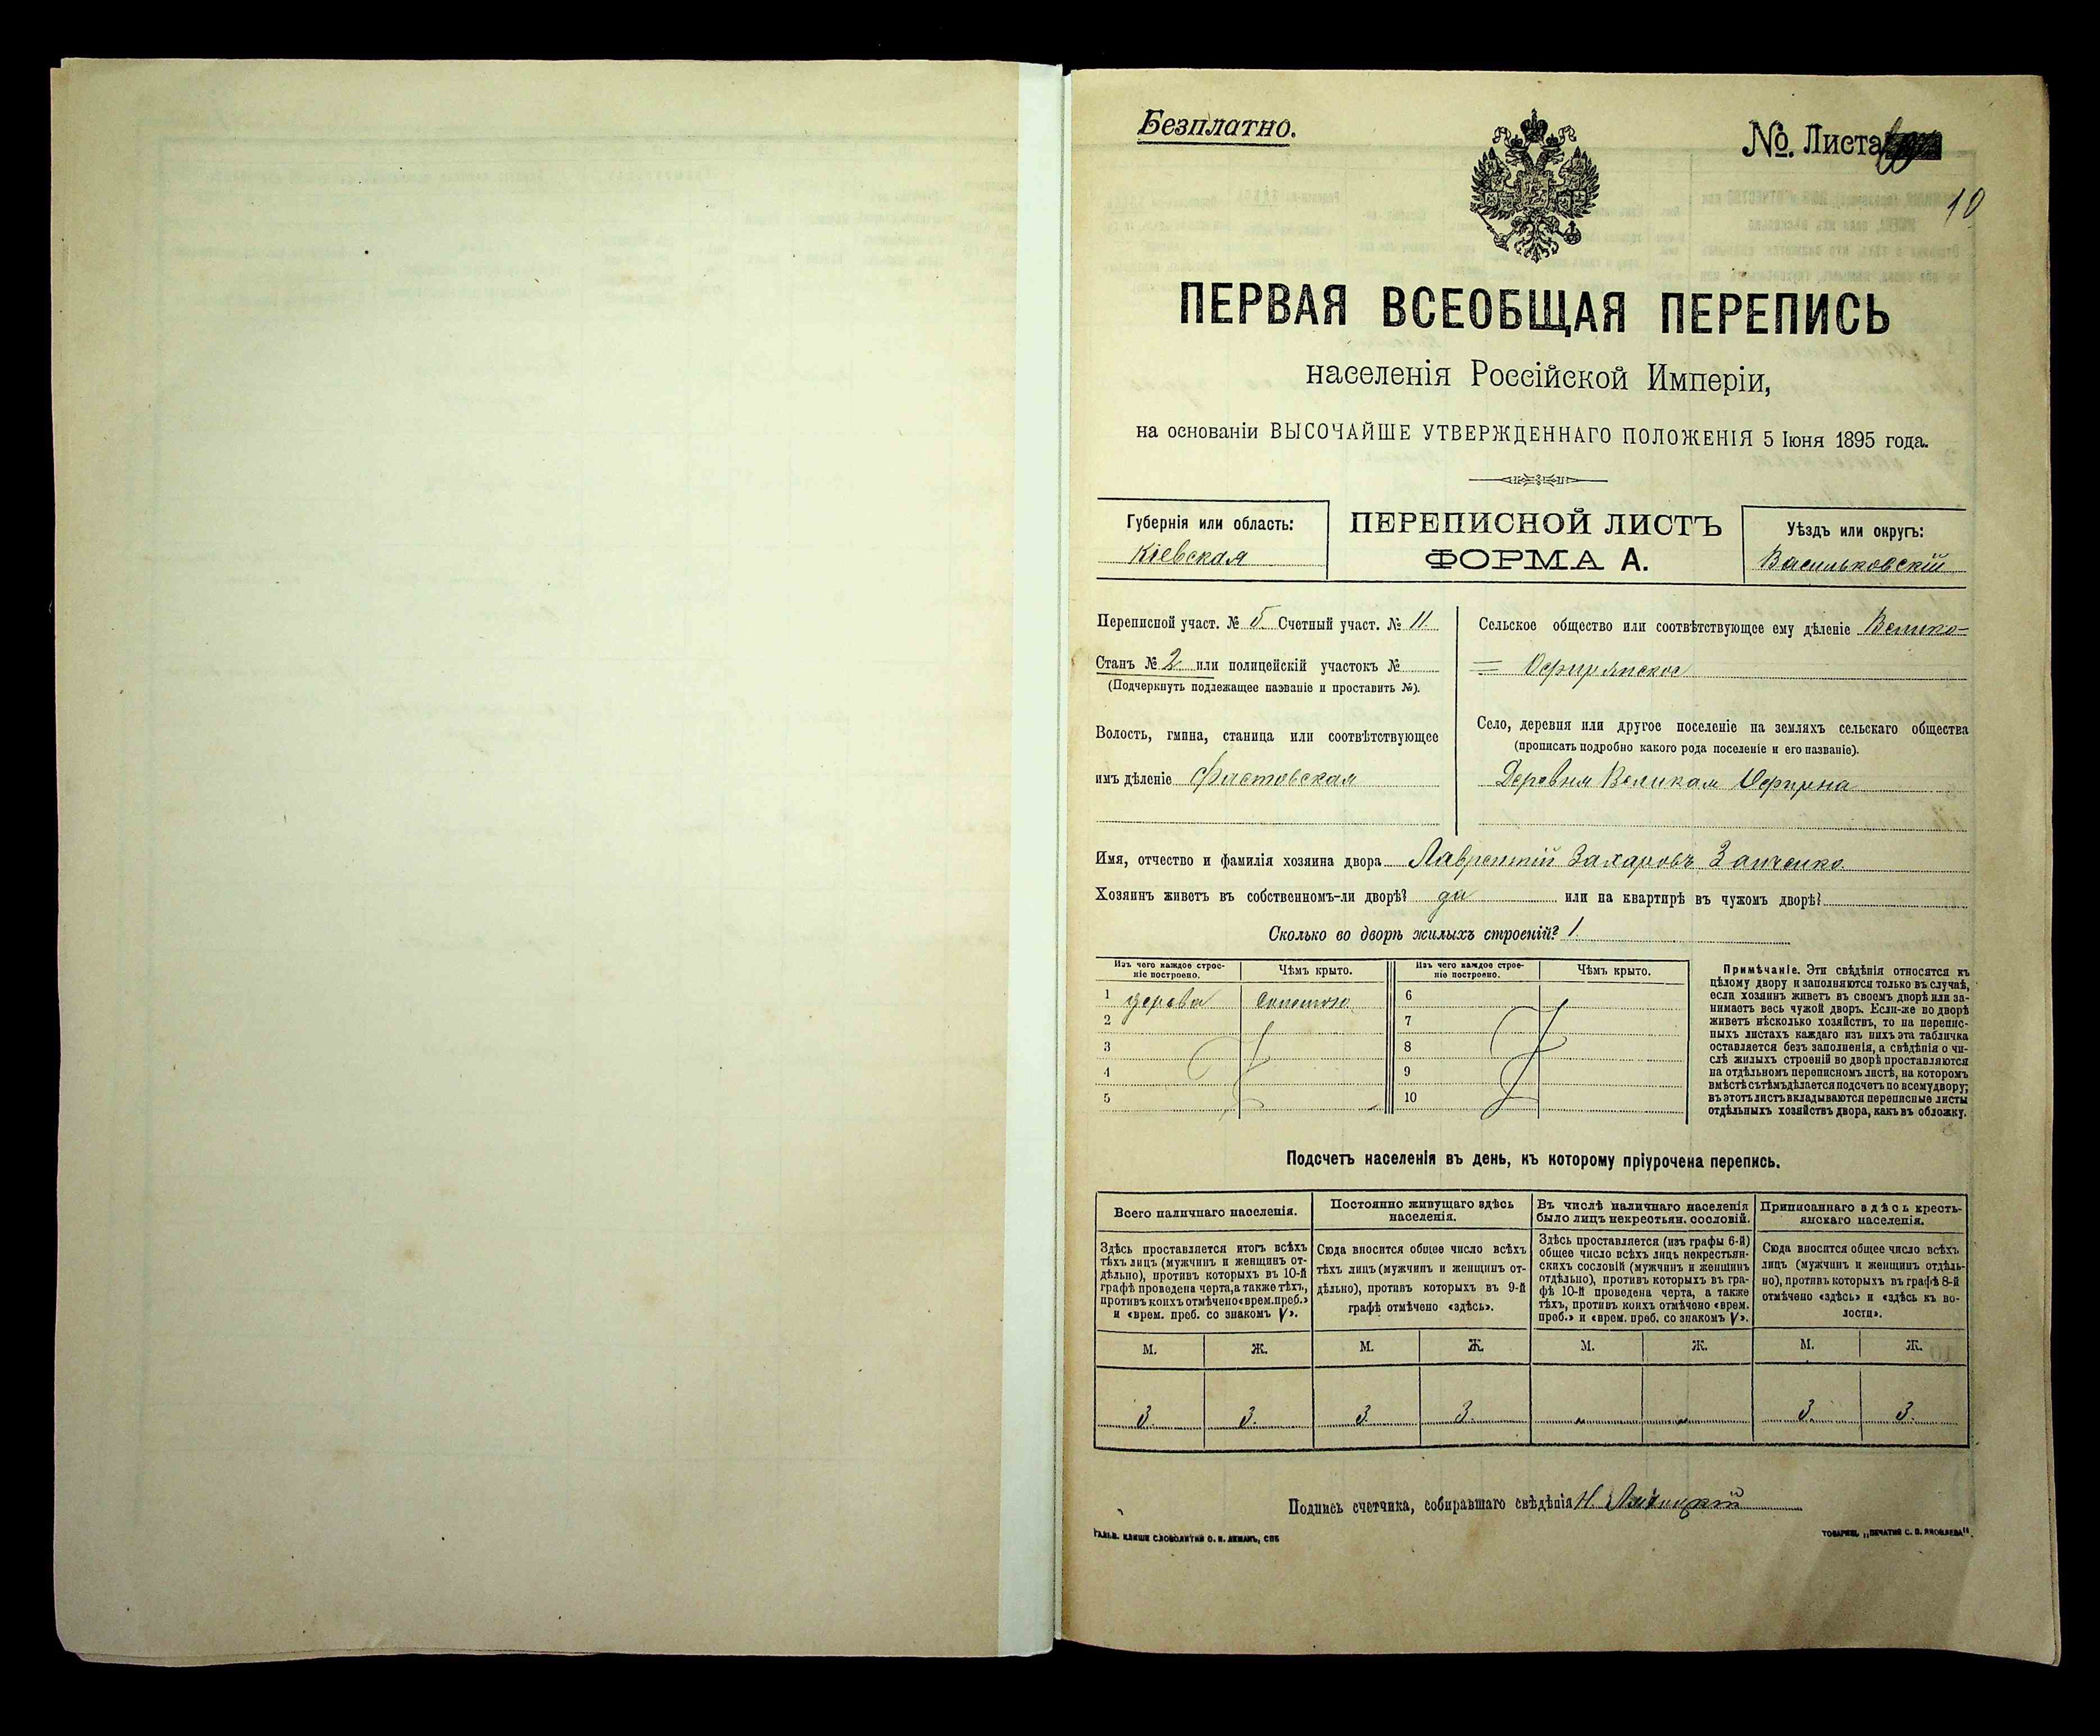 Безплатно.
№. Листа
10
ПЕРВАЯ ВСЕОБЩАЯ ПЕРЕПИСЬ
населенія Россійской Имперіи,
на основаніи ВЫСОЧАЙШЕ УТВЕРЖДЕННАГО ПОЛОЖЕНІЯ 5 Іюня 1895 года.
Губернія или область:
Кіевская
ПЕРЕПИСНОЙ ЛИСТЪ
ФОРМА А.
Уѣздъ или округъ:
Васильковскій
Переписной участ. № 5 Счетный участ. № 11
Станъ № 2 или полицейскій участокъ №
(Подчеркнуть подлежащее названіе и проставить №).
Волость, гмина, станица или соотвѣтствующее
имъ дѣленіе Фастовская
Сельское общество или соотвѣтствующее ему дѣленіе Велико=
= Офирянское
Село, деревня или другое поселеніе на земляхъ сельскаго общества
(прописать подробно какого рода поселеніе и его названіе).
Деревня Великая Офирна
Имя, отчество и фамилія хозяина двора Лаврентій Захаровъ Заиченко
Хозяинъ живетъ въ собственномъ-ли дворѣ? да или на квартирѣ въ чужомъ дворѣ?
Сколько во дворѣ жилыхъ строеній? 1
Изъ чего каждое строе-
ніе построено.
Чѣмъ крыто.
Изъ чего каждое строе-
ніе построено.
Чѣмъ крыто.
1 дерева соломою 6
2 7
3 8
4 9
5 10
Примѣчаніе. Эти свѣдѣнія относятся къ
цѣлому двору и заполняются только въ случаѣ,
если хозяинъ живетъ въ своемъ дворѣ или за-
нимаетъ весь чужой дворъ. Если-же во дворѣ
живетъ нѣсколько хозяйствъ, то на перепис-
ныхъ листахъ каждаго изъ нихъ эта табличка
оставляется безъ заполненія, а свѣдѣнія о чи-
слѣ жилыхъ строеній во дворѣ проставляются
на отдѣльномъ переписномъ листѣ, на которомъ
вмѣстѣ съ тѣмъ дѣлается подсчетъ по всему двору;
въ этотъ листъ вкладываются переписные листы
отдѣльныхъ хозяйствъ двора, какъ въ обложку.
Подсчетъ населенія въ день, къ которому пріурочена перепись.
Всего наличнаго населенія.
Здѣсь проставляется итогъ всѣхъ
тѣхъ лицъ (мужчинъ и женщинъ от-
дѣльно), противъ которыхъ въ 10-й
графѣ проведена черта, а также тѣхъ,
противъ коихъ отмѣчено «врем. преб.»
и «врем. преб. со знакомъ V».
Постоянно живущаго здѣсь
населенія.
Сюда вносится общее число всѣхъ
тѣхъ лицъ (мужчинъ и женщинъ от-
дѣльно), противъ которыхъ въ 9-й
графѣ отмѣчено «здѣсь».
Въ числѣ наличнаго населенія
было лицъ некрестьян. сословій.
Здѣсь проставляется (изъ графы 6-й)
общее число всѣхъ лицъ некрестьян-
скихъ сословій (мужчинъ и женщинъ
отдѣльно), противъ которыхъ въ гра-
фѣ 10-й проведена черта, а также
тѣхъ, противъ коихъ отмѣчено «врем.
преб.» и «врем. преб. со знакомъ V».
Приписаннаго здѣсь кресть-
янскаго населенія.
Сюда вносится общее число всѣхъ
лицъ (мужчинъ и женщинъ отдѣль-
но), противъ которыхъ въ графѣ 8-й
отмѣчено «здѣсь» и «здѣсь къ во-
лости».
М. Ж. М. Ж. М. Ж. М. Ж.
3. 3. 3. 3. „ „ 3. 3.
Подпись счетчика, собиравшаго свѣдѣнія Н.
ГАЛЬВ. КЛИШЕ СЛОВОЛИТНИ О. И. ЛЕМАНЪ, СПБ
ТОВАРИЩ. „ПЕЧАТНЯ С. П. ЯКОВЛЕВА".